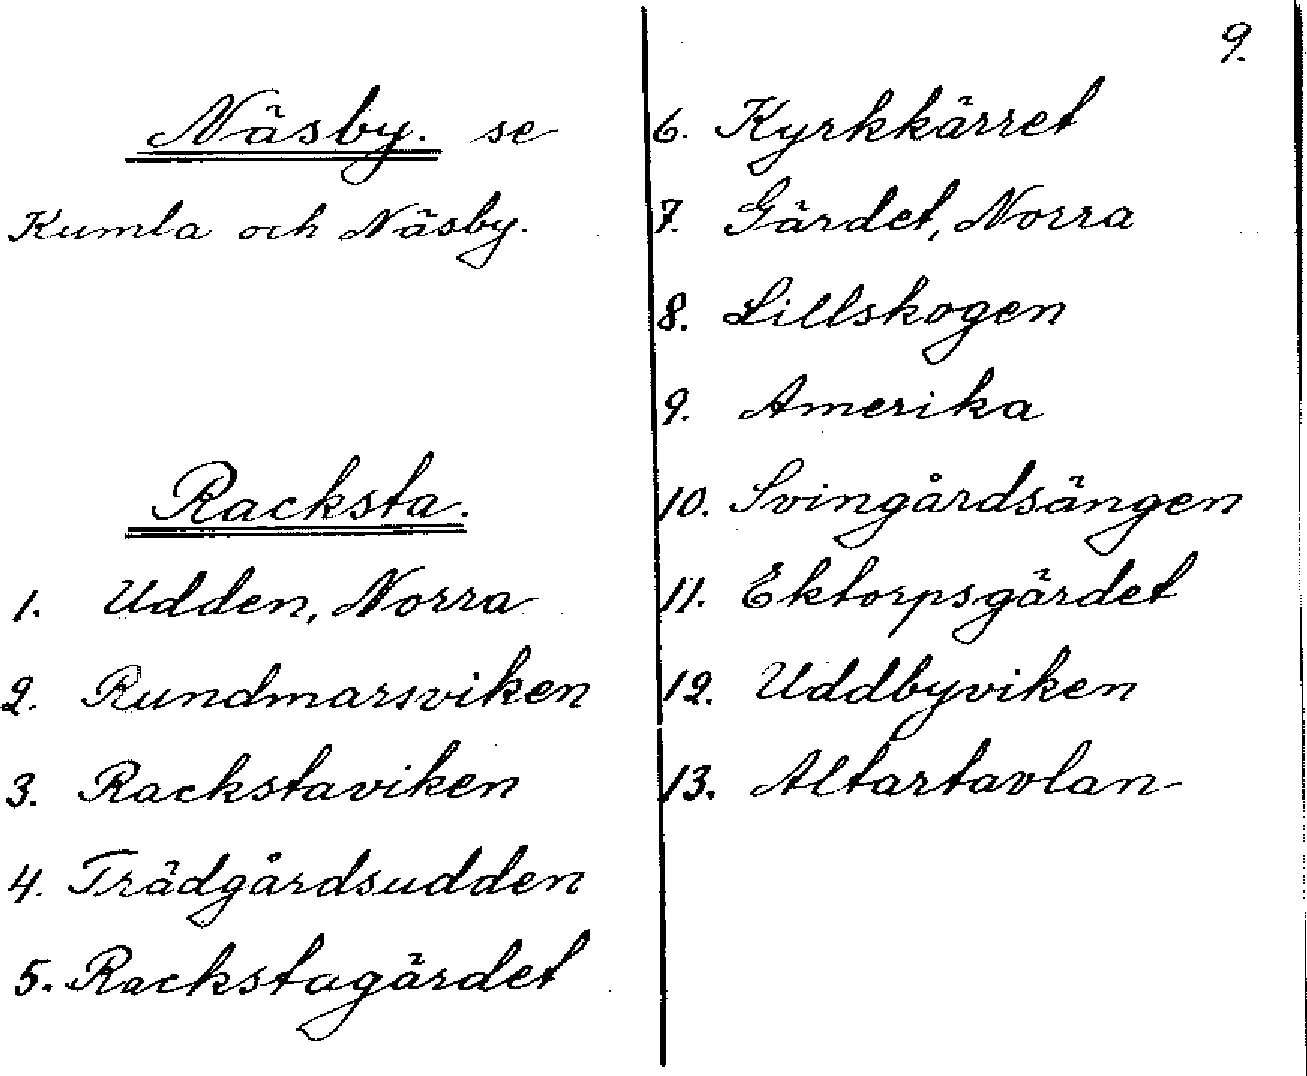 9.
Näsby. se
Kumla och Näsby.
Racksta.
1. Udden, Norra
2. Rundmarsviken
3. Rackstaviken
4. Trädgårdsudden
5. Rackstagärdet
6. Kyrkkärret
7. Gärdet, Norra
8. Lillskogen
9. Amerika
10. Svingårdsängen
11. Ektorpsgärdet
12. Uddbyviken
13. Altartavlan